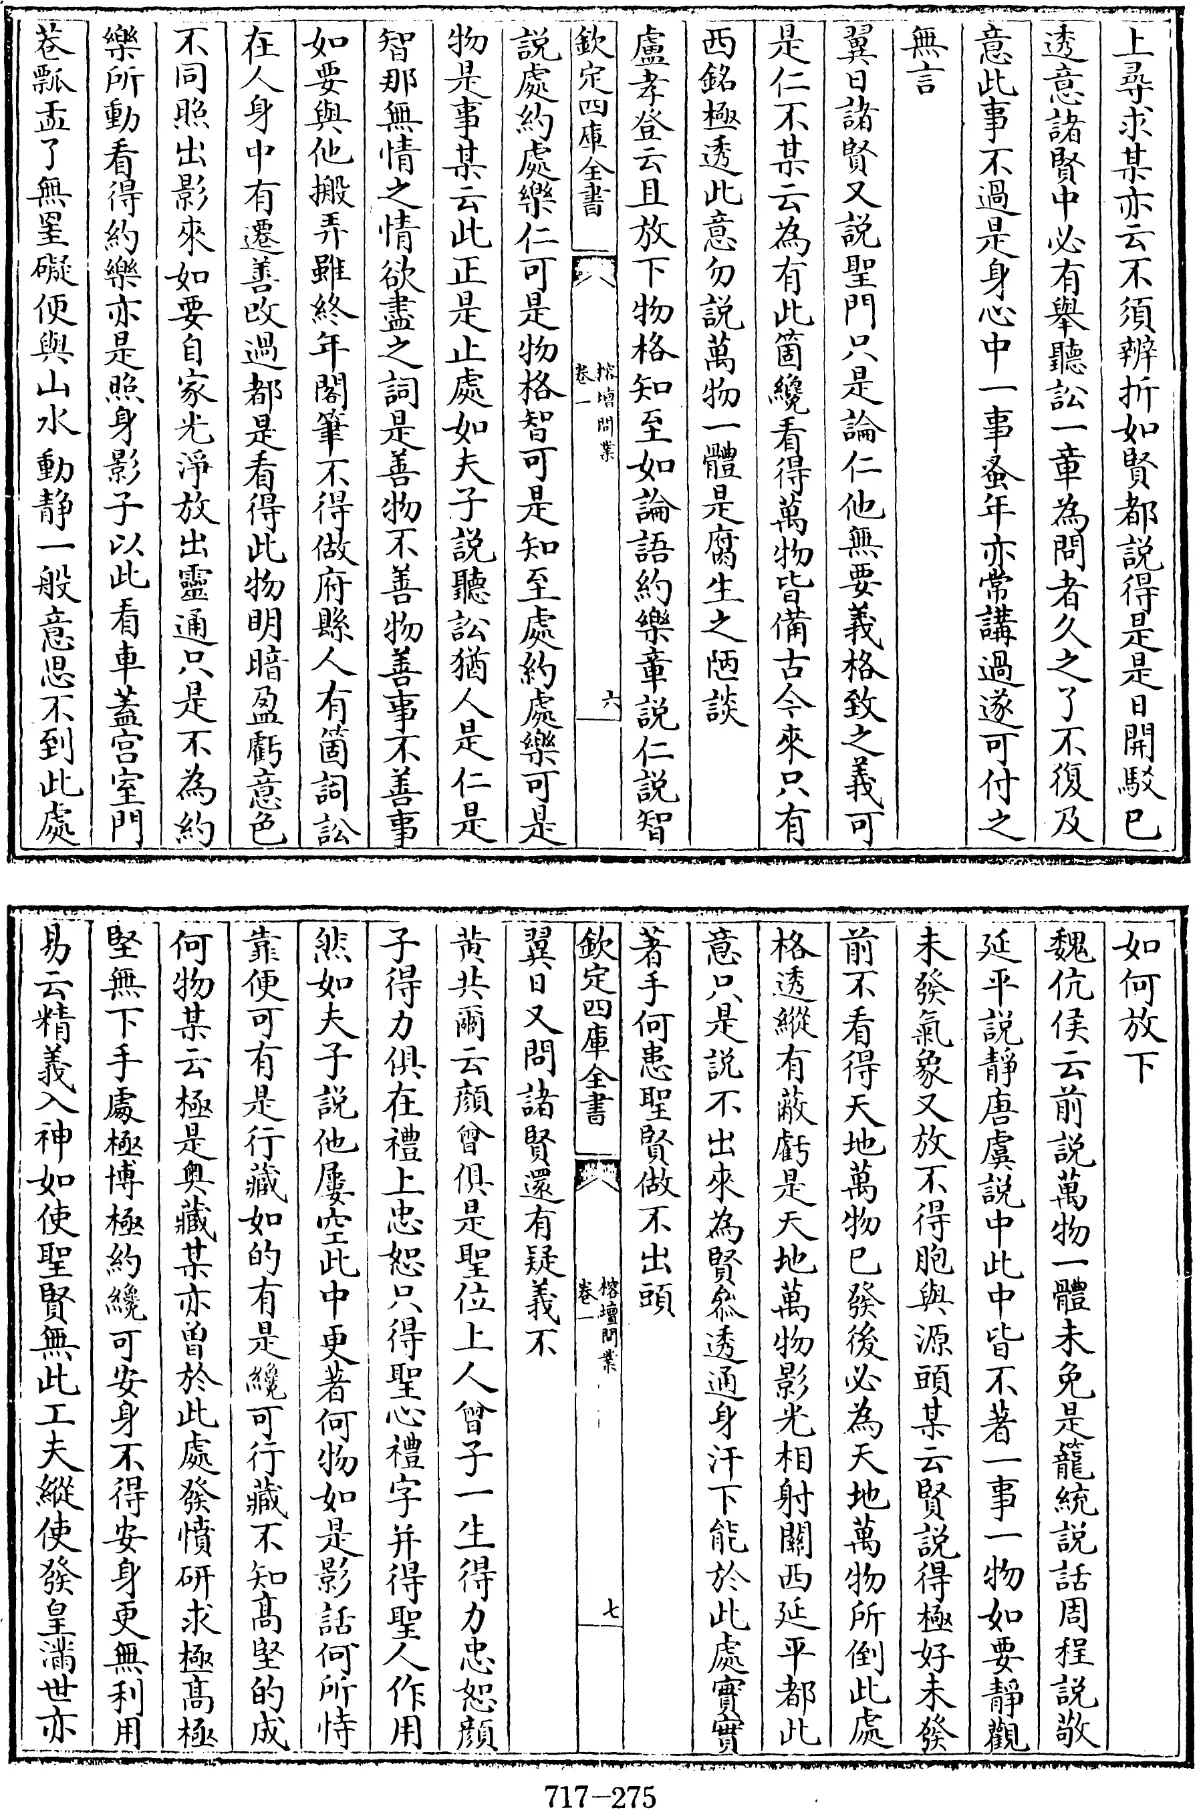 上尋求某亦云不須辨折如賢都說得是是日開駁已
透意諸賢中必有舉聽訟一章為問者久之了不復及
意此事不過是身心中一事蚤年亦常講過遂可付之
無言
翼日諸賢又說聖門只是論仁他無要義格致之義可
是仁不某云為有此箇纔看得萬物皆備古今來只有
西銘極透此意勿說萬物一體是腐生之陋談
盧孝登云且放下物格知至如論語約樂章說仁說智
欽定四庫全書
榕壇問業
卷一
六
說處約處樂仁可是物格智可是知至處約處樂可是
物是事某云此正是止處如夫子說聽訟猶人是仁是
智那無情之情欲盡之詞是善物不善物善事不善事
如要與他搬弄雖終年閣筆不得做府縣人有箇詞訟
在人身中有遷善改過都是看得此物明暗盈虧意色
不同照出影來如要自家光淨放出靈通只是不為約
樂所動看得約樂亦是照身影子以此看車蓋宫室門
巷瓢盂了無罣礙便與山水動靜一般意思不到此處
如何放下
魏伉侯云前說萬物一體未免是籠統說話周程說敬
延平說靜唐虞說中此中皆不著一事一物如要靜觀
未發氣象又放不得胞與源頭某云賢說得極好未發
前不看得天地萬物已發後必為天地萬物所倒此處
格透縱有蔽虧是天地萬物影光相射關西延平都此
意只是說不出來為賢叅透通身汗下能於此處實實
著手何患聖賢做不出頭
欽定四庫全書
榕壇問業
卷一
七
翼日又問諸賢還有疑義不
黄共爾云顔曾俱是聖位上人曾子一生得力忠恕顔
子得力俱在禮上忠恕只得聖心禮字并得聖人作用
然如夫子說他屢空此中更著何物如是影話何所恃
靠便可有是行藏如的有是纔可行藏不知髙堅的成
何物某云極是奥藏某亦曽於此處發憤研求極髙極
堅無下手處極博極約纔可安身不得安身更無利用
易云精義入神如使聖賢無此工夫縱使發皇滿世亦
717-275